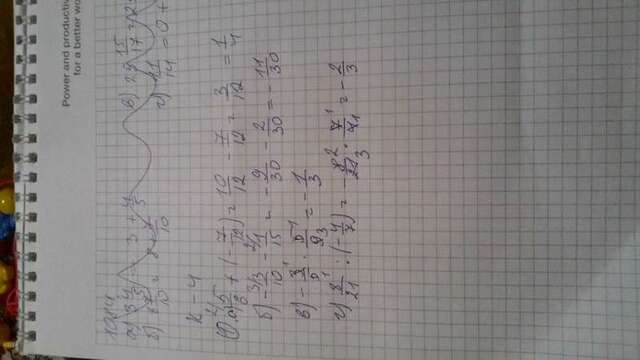 Power and productiv
for a better wo
1084
а) 3 4/5 = 3 + 4/5 в) 23 15/17 = 23
б) 8 7/10 = 8 + 7/10 г) 11/14 = 0 +
К - 4
① а) 5/6 + (- 7/12) = 10/12 - 7/12 = 3/12 = 1/4
б) - 3/10 - 1/15 = - 9/30 - 2/30 = - 11/30
в) - 3/5 · 5/9 = - 1/3
г) 8/21 : (- 4/7) = - 8/21 · 7/4 = - 2/3